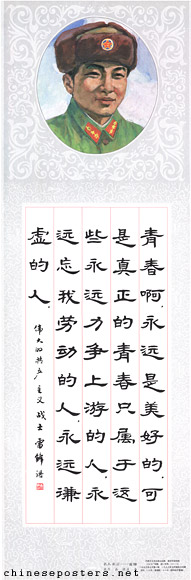 青春啊,永远是美好的,可
是真正的青春只属于这
些永远力争上游的人,永
远忘我劳动的人,永远谦
虚的人。
伟大的共产主义战士雷锋语
chineseposters.net